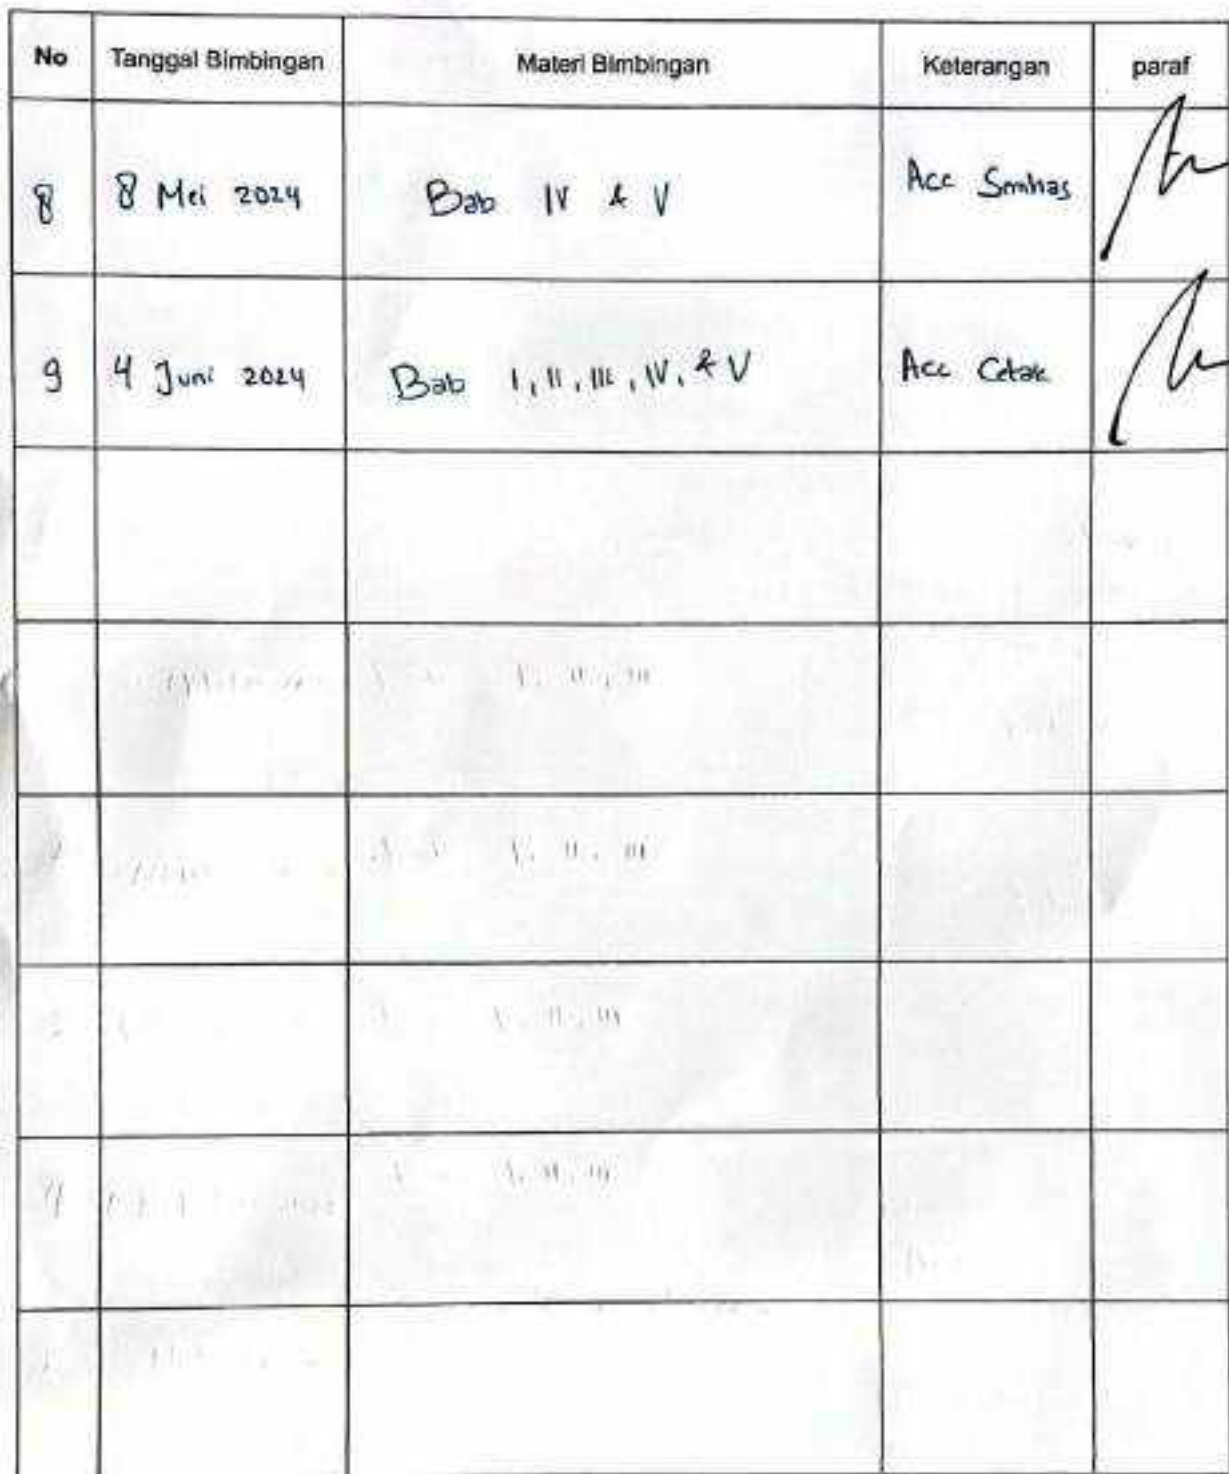 No Tanggal Bimbingan Materi Bimbingan Keterangan paraf
8 8 Mei 2024 Bab IV & V Acc Semhas
9 4 Juni 2024 Bab I, II, III, IV, & V Acc Cetak